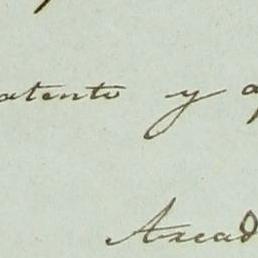 atento y a
Arcad